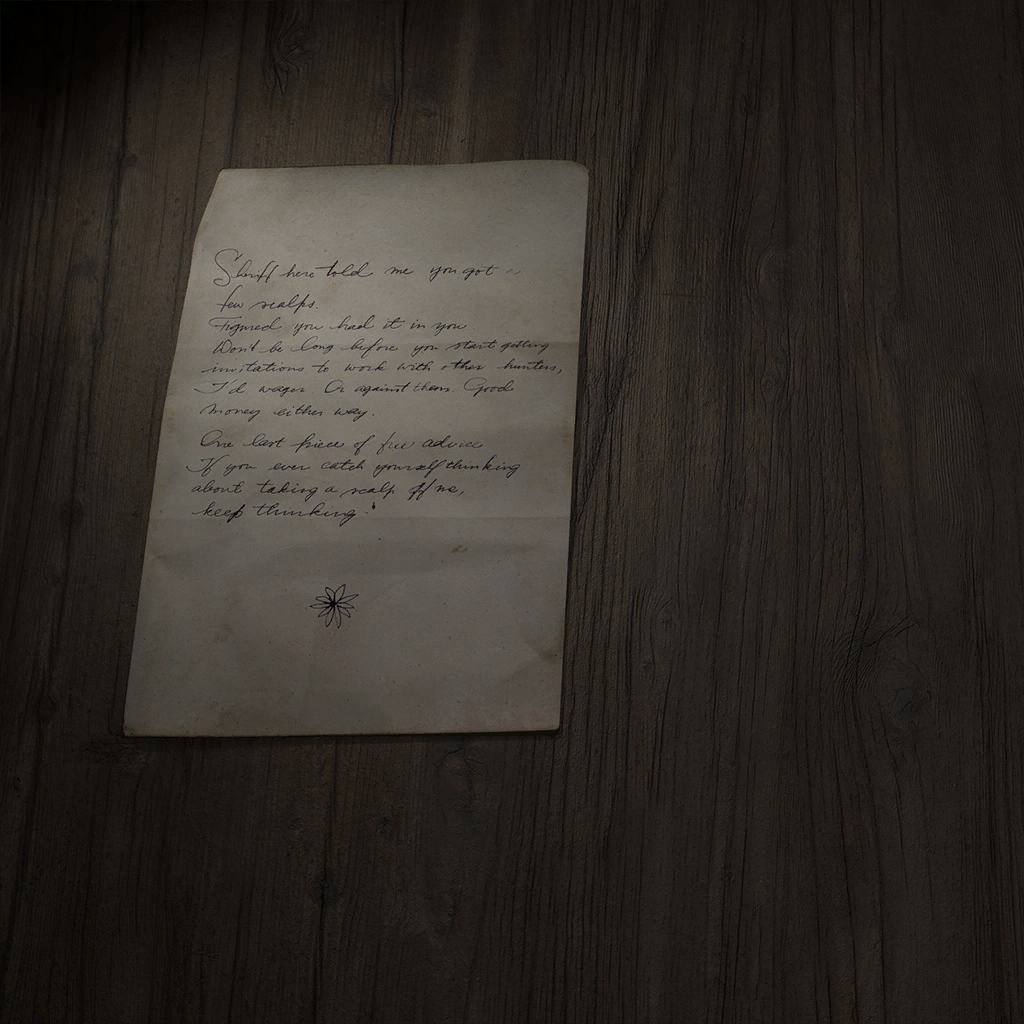 Sheriff here told me you got a
few scalps.
Figured you had it in you
Won't be long before you start getting
invitations to work with other hunters,
I'd wager. Or against them. Good
money either way.
One last piece of free advice
If you ever catch yourself thinking
about taking a scalp off me,
keep thinking.